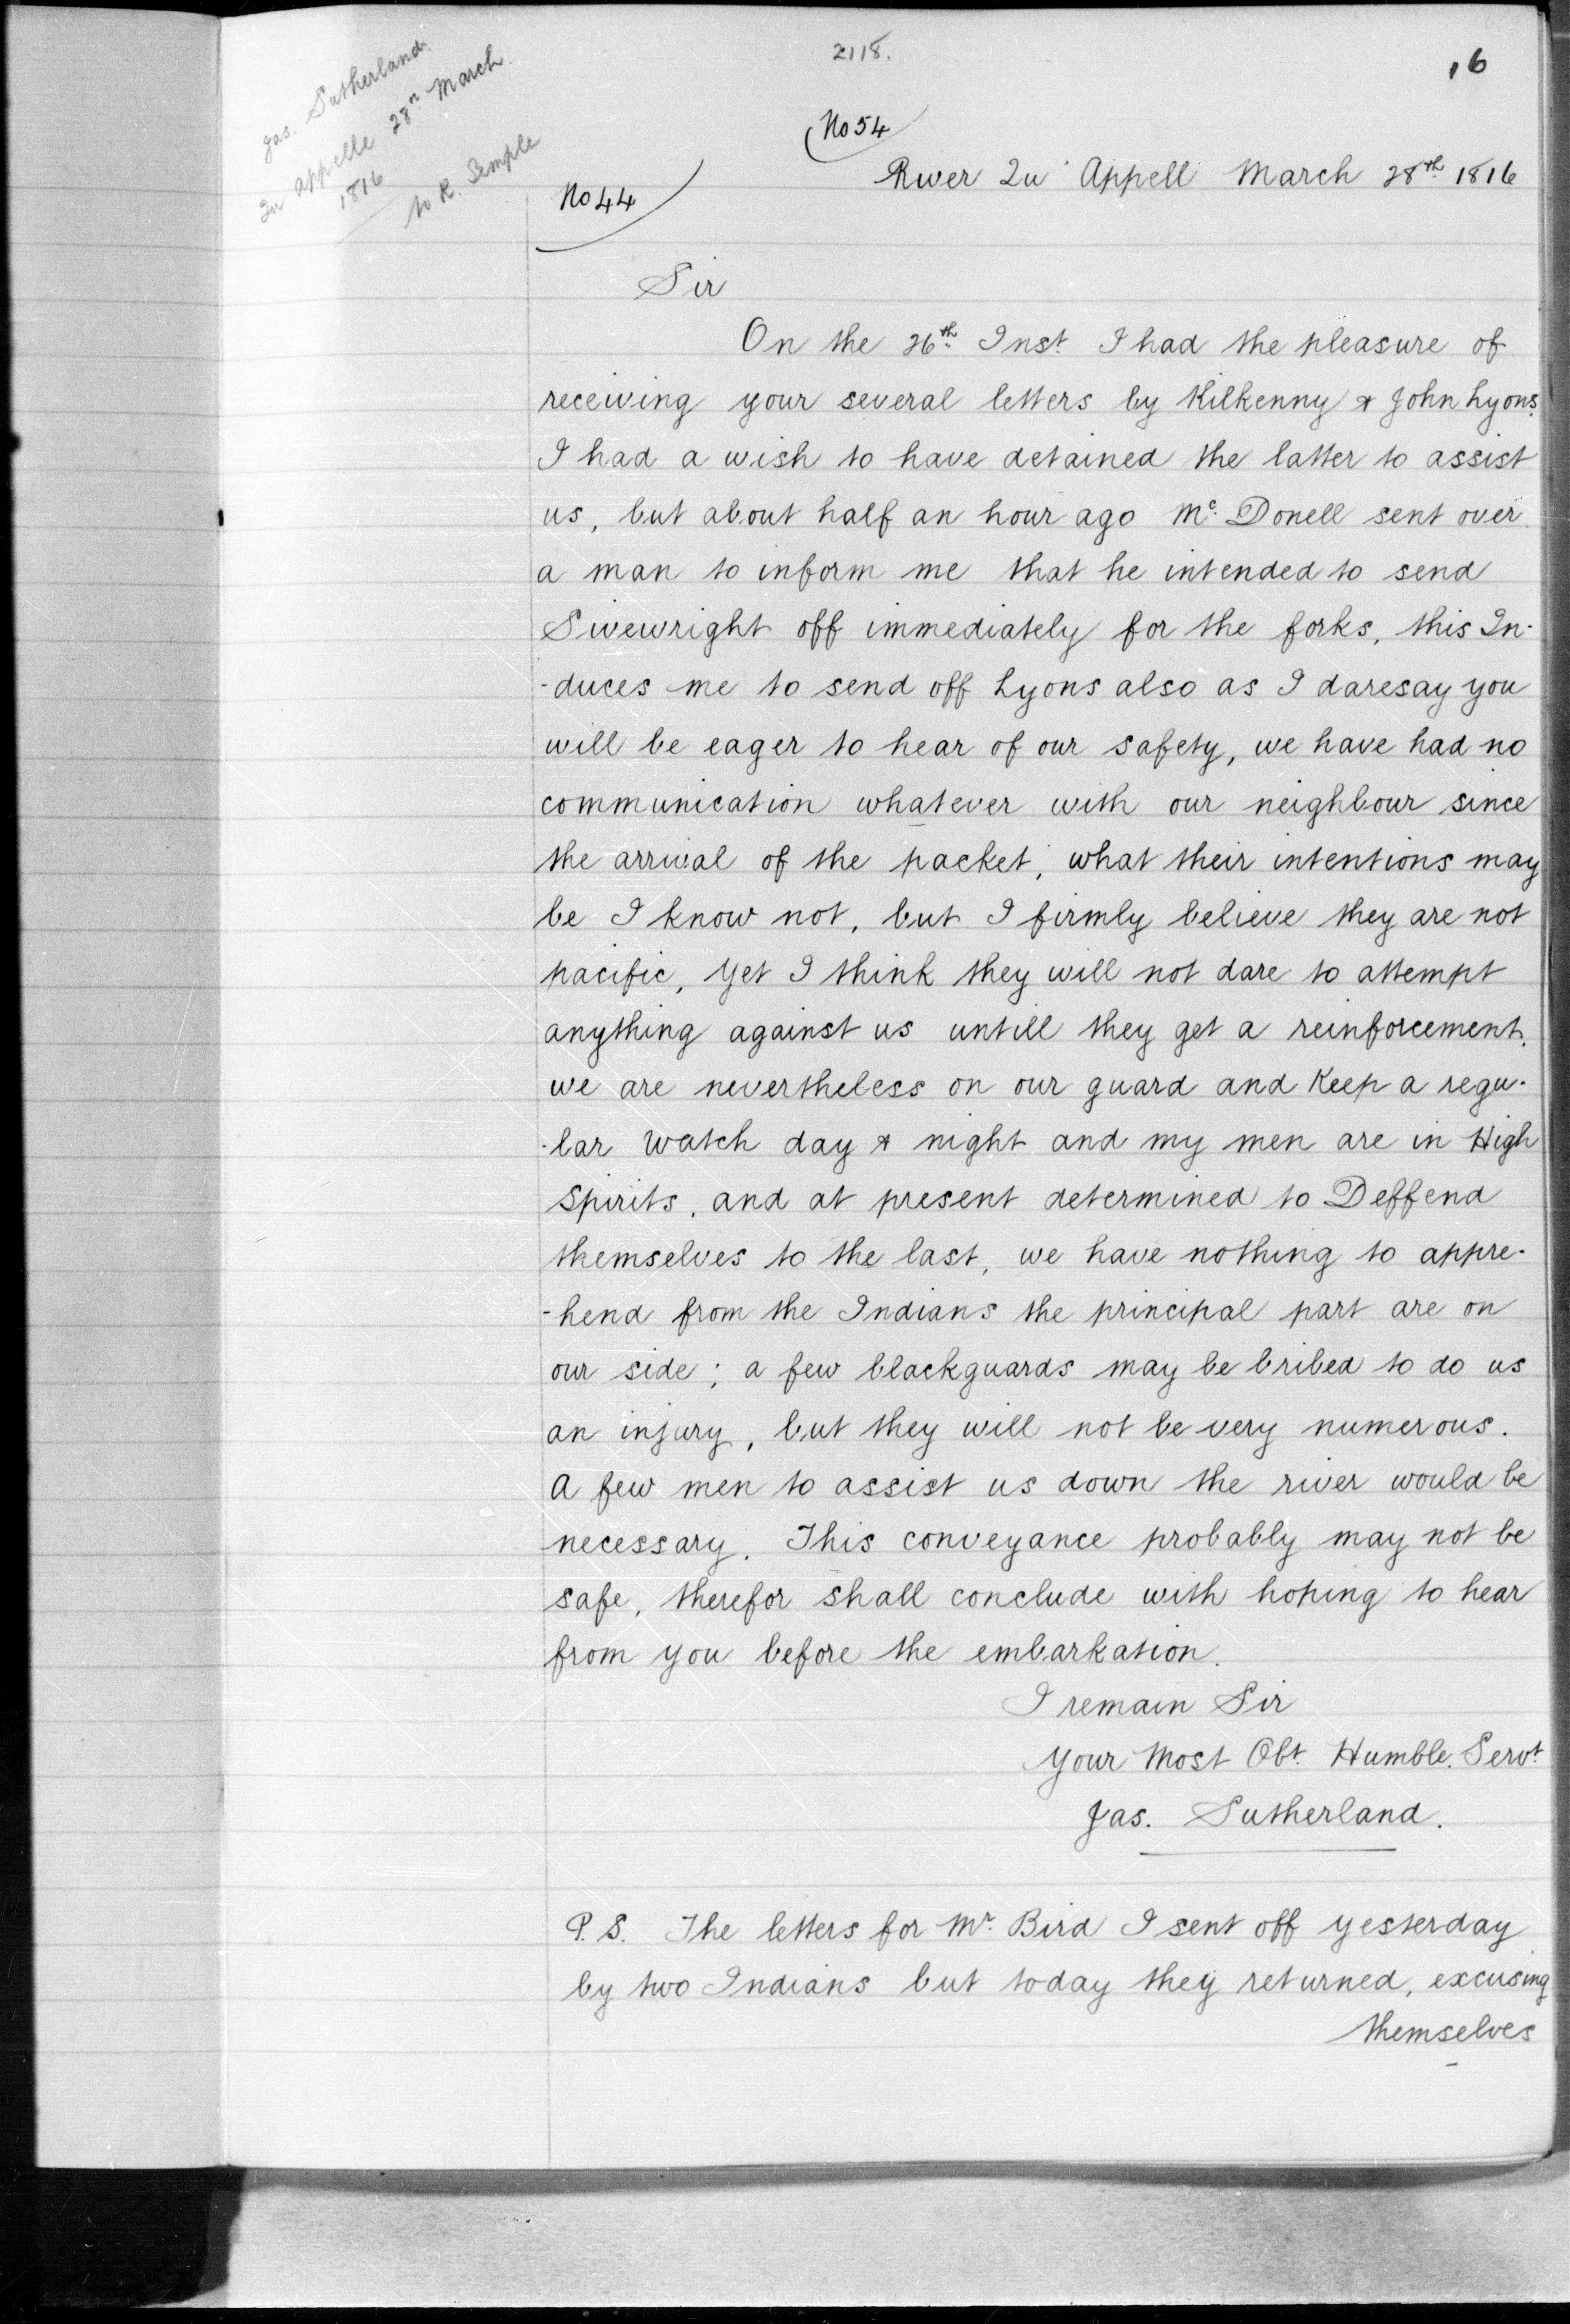 2118.
16
Jas. Sutherland.
Qu appelle 28th March.
1816
to R. Semple
No 54
No 44
River Qu' Appell March 28th 1816
Sir
On the 26th Inst. I had the pleasure of
receiving your several letters by Kilkenny & John Lyons.
I had a wish to have detained the latter to assist
us, but about half an hour ago Mc. Donell sent over
a man to inform me that he intended to send
Sivewright off immediately for the forks, this In-
-duces me to send off Lyons also as I daresay you
will be eager to hear of our safety, we have had no
communication whatever with our neighbour since
the arrival of the packet, what their intentions may
be I know not, but I firmly believe they are not
pacific, yet I think they will not dare to attempt
anything against us untill they get a reinforcement.
we are nevertheless on our guard and Keep a regu-
-lar watch day & night and my men are in High
spirits, and at present determined to Deffend
themselves to the last, we have nothing to appre-
-hend from the Indians the principal part are on
our side; a few blackguards may be bribed to do us
an injury, but they will not be very numerous.
A few men to assist us down the river would be
necessary. This conveyance probably may not be
safe, therefor shall conclude with hoping to hear
from you before the embarkation.
I remain Sir
Your Most Obt. Humble. Servt.
Jas. Sutherland.
P.S. The letters for Mr. Bird I sent off yesterday
by two Indians but today they returned, excusing
themselves